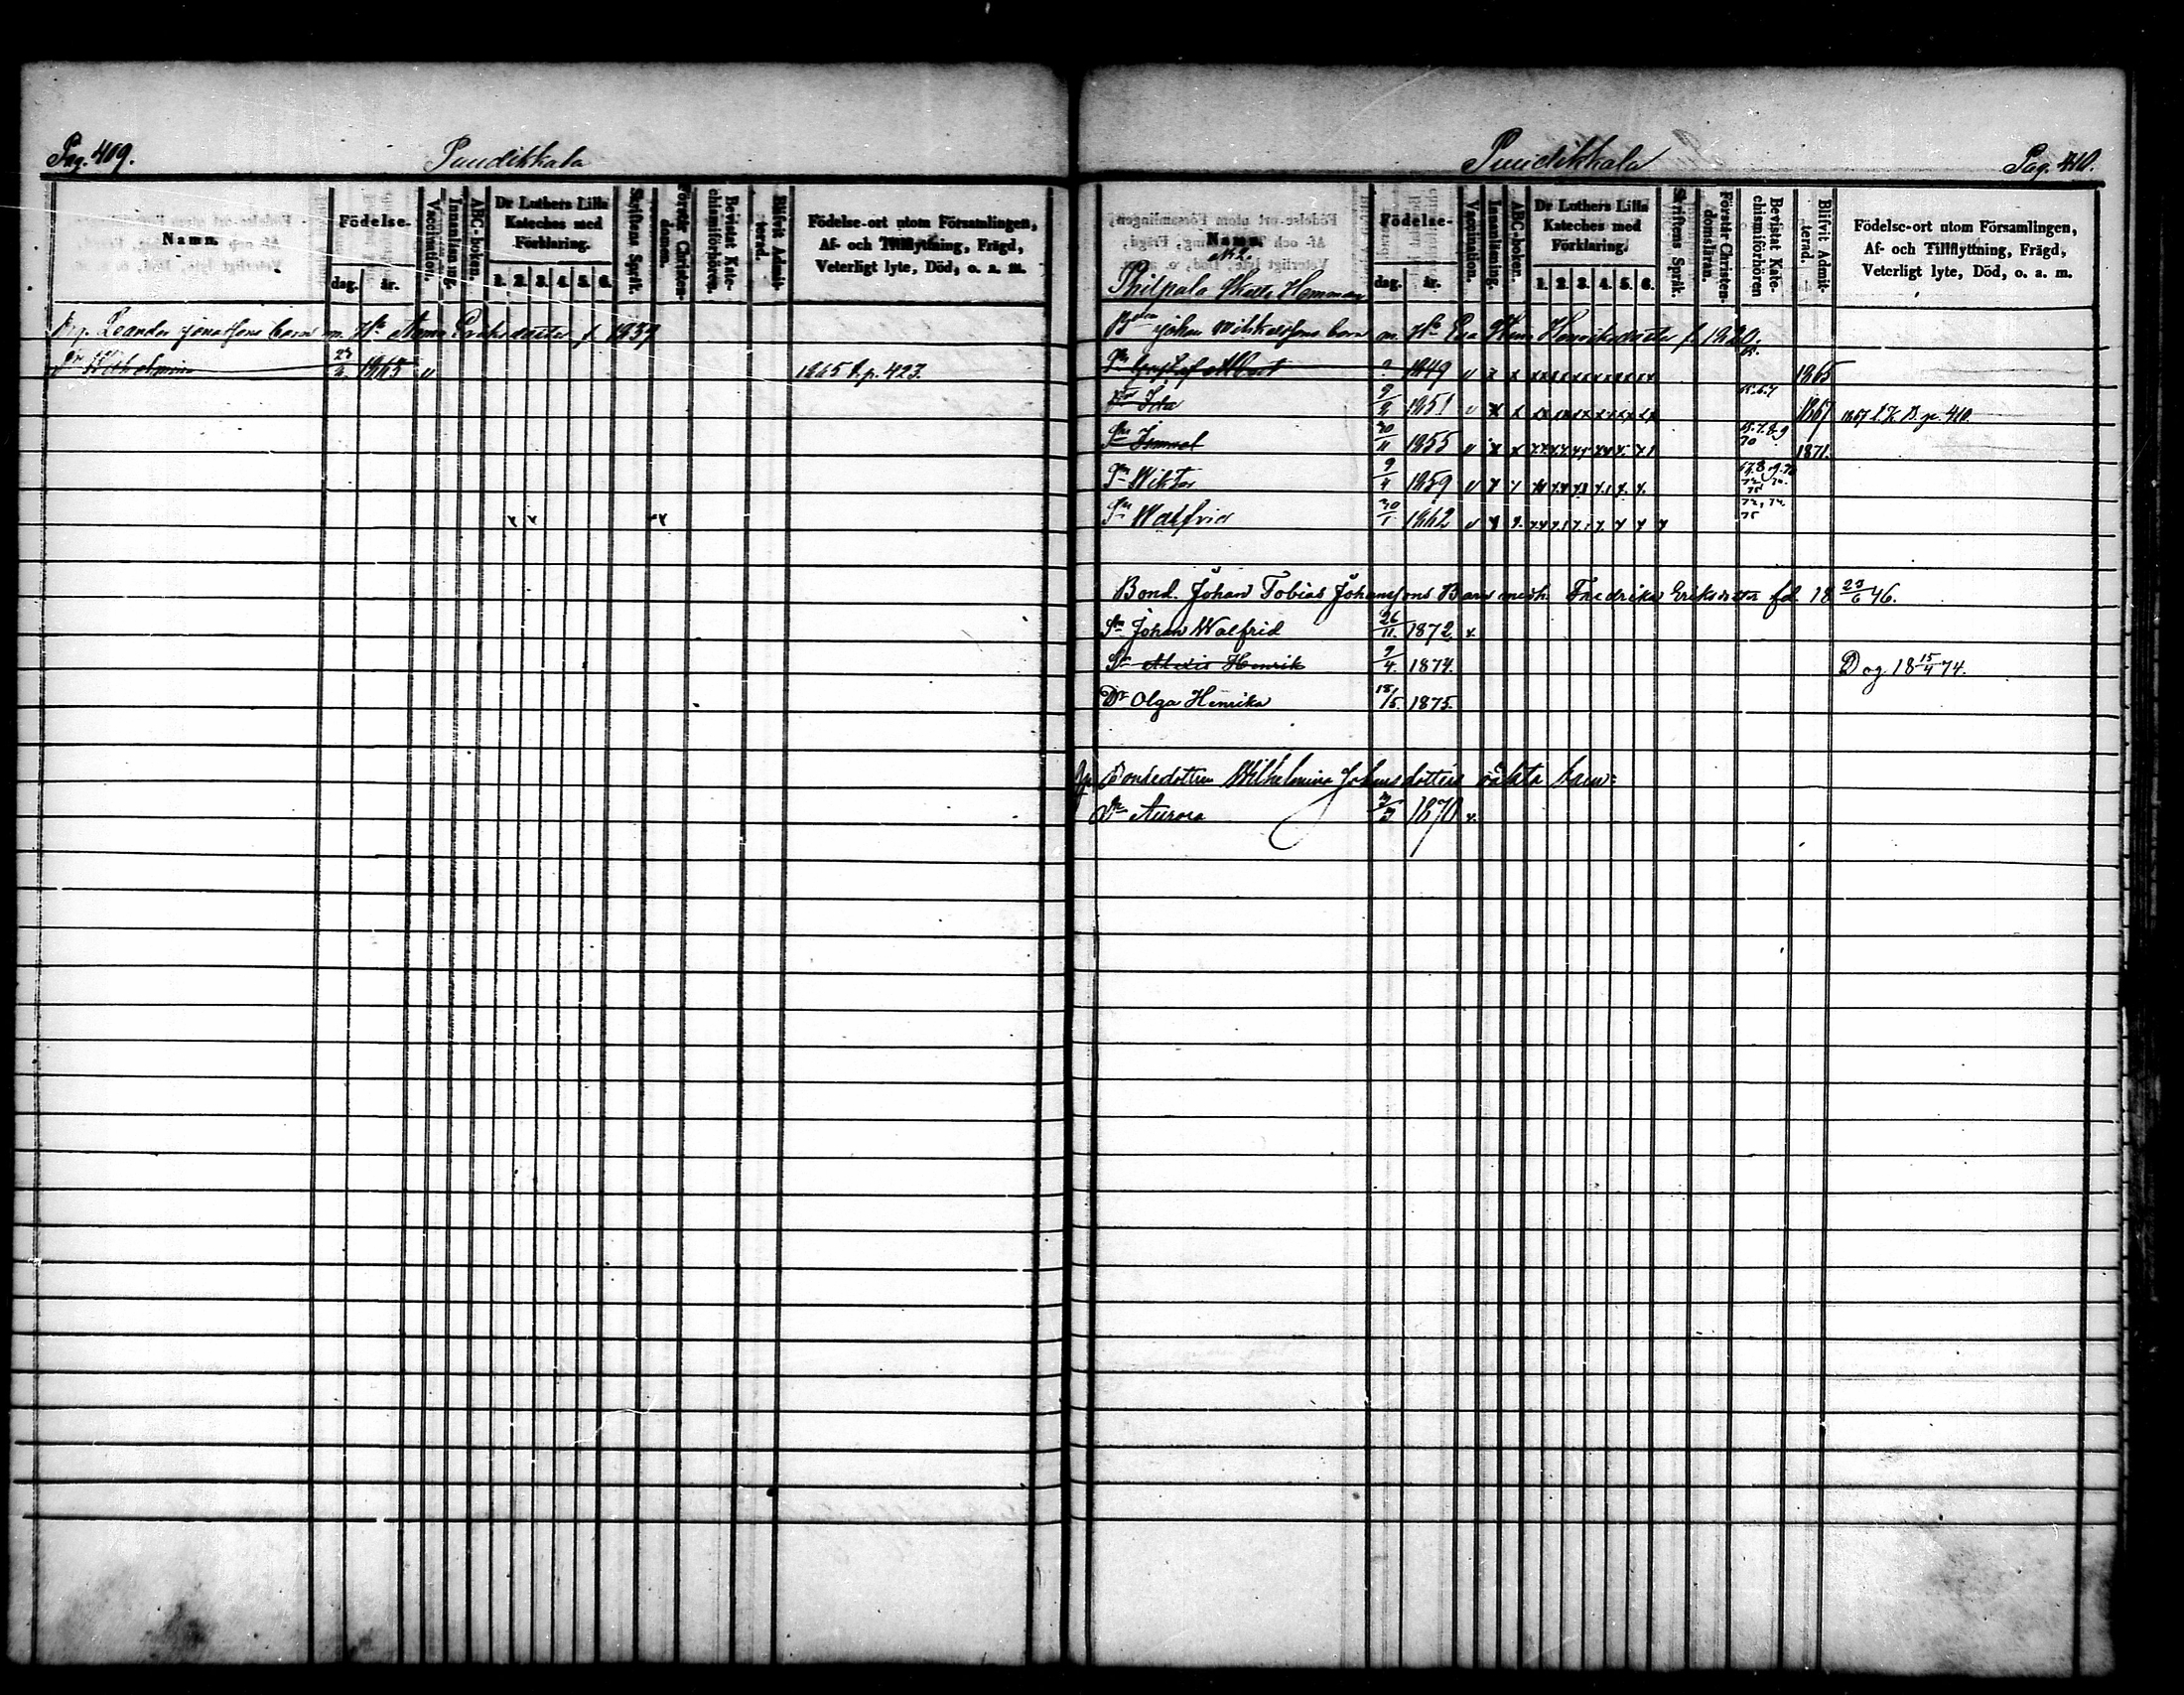 Pag. 409.
Puudikkala
Namn.
Födelse-
dag.
år.
Vaccination.
Innanläsning.
ABC-boken.
Dr Luthers Lilla
Kateches med
Förklaring.
1. 2. 3. 4. 5. 6.
Skriftens Språk.
Förstår Christen-
domen.
Bevistat Kate-
chismiförhören.
Blifvit Admit-
terad.
Födelse-ort utom Församlingen,
Af- och Tillflyttning, Frägd,
Veterligt lyte, Död, o. a. m.
Leander Jonassons barn m. H. Anna f. 1837
Dr Wilhelmina 1865 v 1865 p. 423.
Puudikkala
Pag. 410.
Namn.
Födelse-
dag.
år.
Vaccination.
Innanläsning.
ABC-boken.
Dr Luthers Lilla
Kateches med
Förklaring.
1. 2. 3. 4. 5. 6.
Skriftens Språk.
Förstår Christen-
domsläran.
Bevistat Kate-
chismiförhören
Blifvit Admit-
terad.
Födelse-ort utom Församlingen,
Af- och Tillflyttning, Frägd,
Veterligt lyte, Död, o. a. m.
№ 2.
Philpala Skatte Hemman
Johan barn m. H. Eva Henriksdotter f. 1820.
Sn Gustaf Albert 1849 v x x 1865
Dr Ida 9/2 1851 v x x 65.6.7 1867 1867 B. p. 410.
Sn Immel 30/11 1855 v x x 70 1871.
Sn Wiktor 9/4 1859 v
Sn Walfrid 30/1 1862 v
Bond. Johan Tobias Johanssons Barn med h. Fredrika Eriksdotter fd. 18 23/6 46.
Sn Johan Walfrid 26/11 1872 v.
Sn Alexis Henrik 9/4. 1874. Dog 18 15/4 74.
Dr Olga Henrika 18/5. 1875.
Bondedottren Wilhelmina Johansdotters oäkta barn:
Dr Aurora 3/3 1870 v.